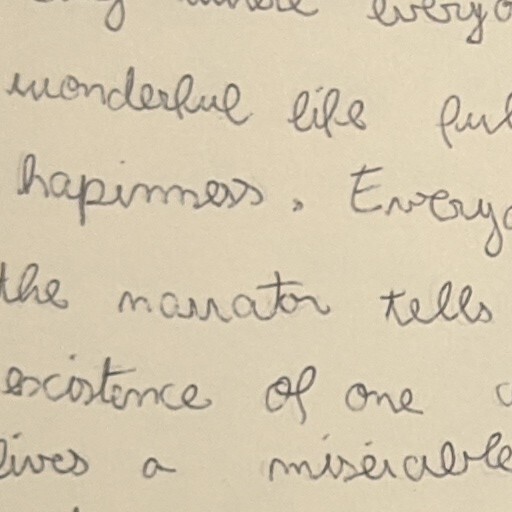 where everyo
wonderful life ful
hapinness. Everyo
the narrator tells
existence of one c
lives a misérable